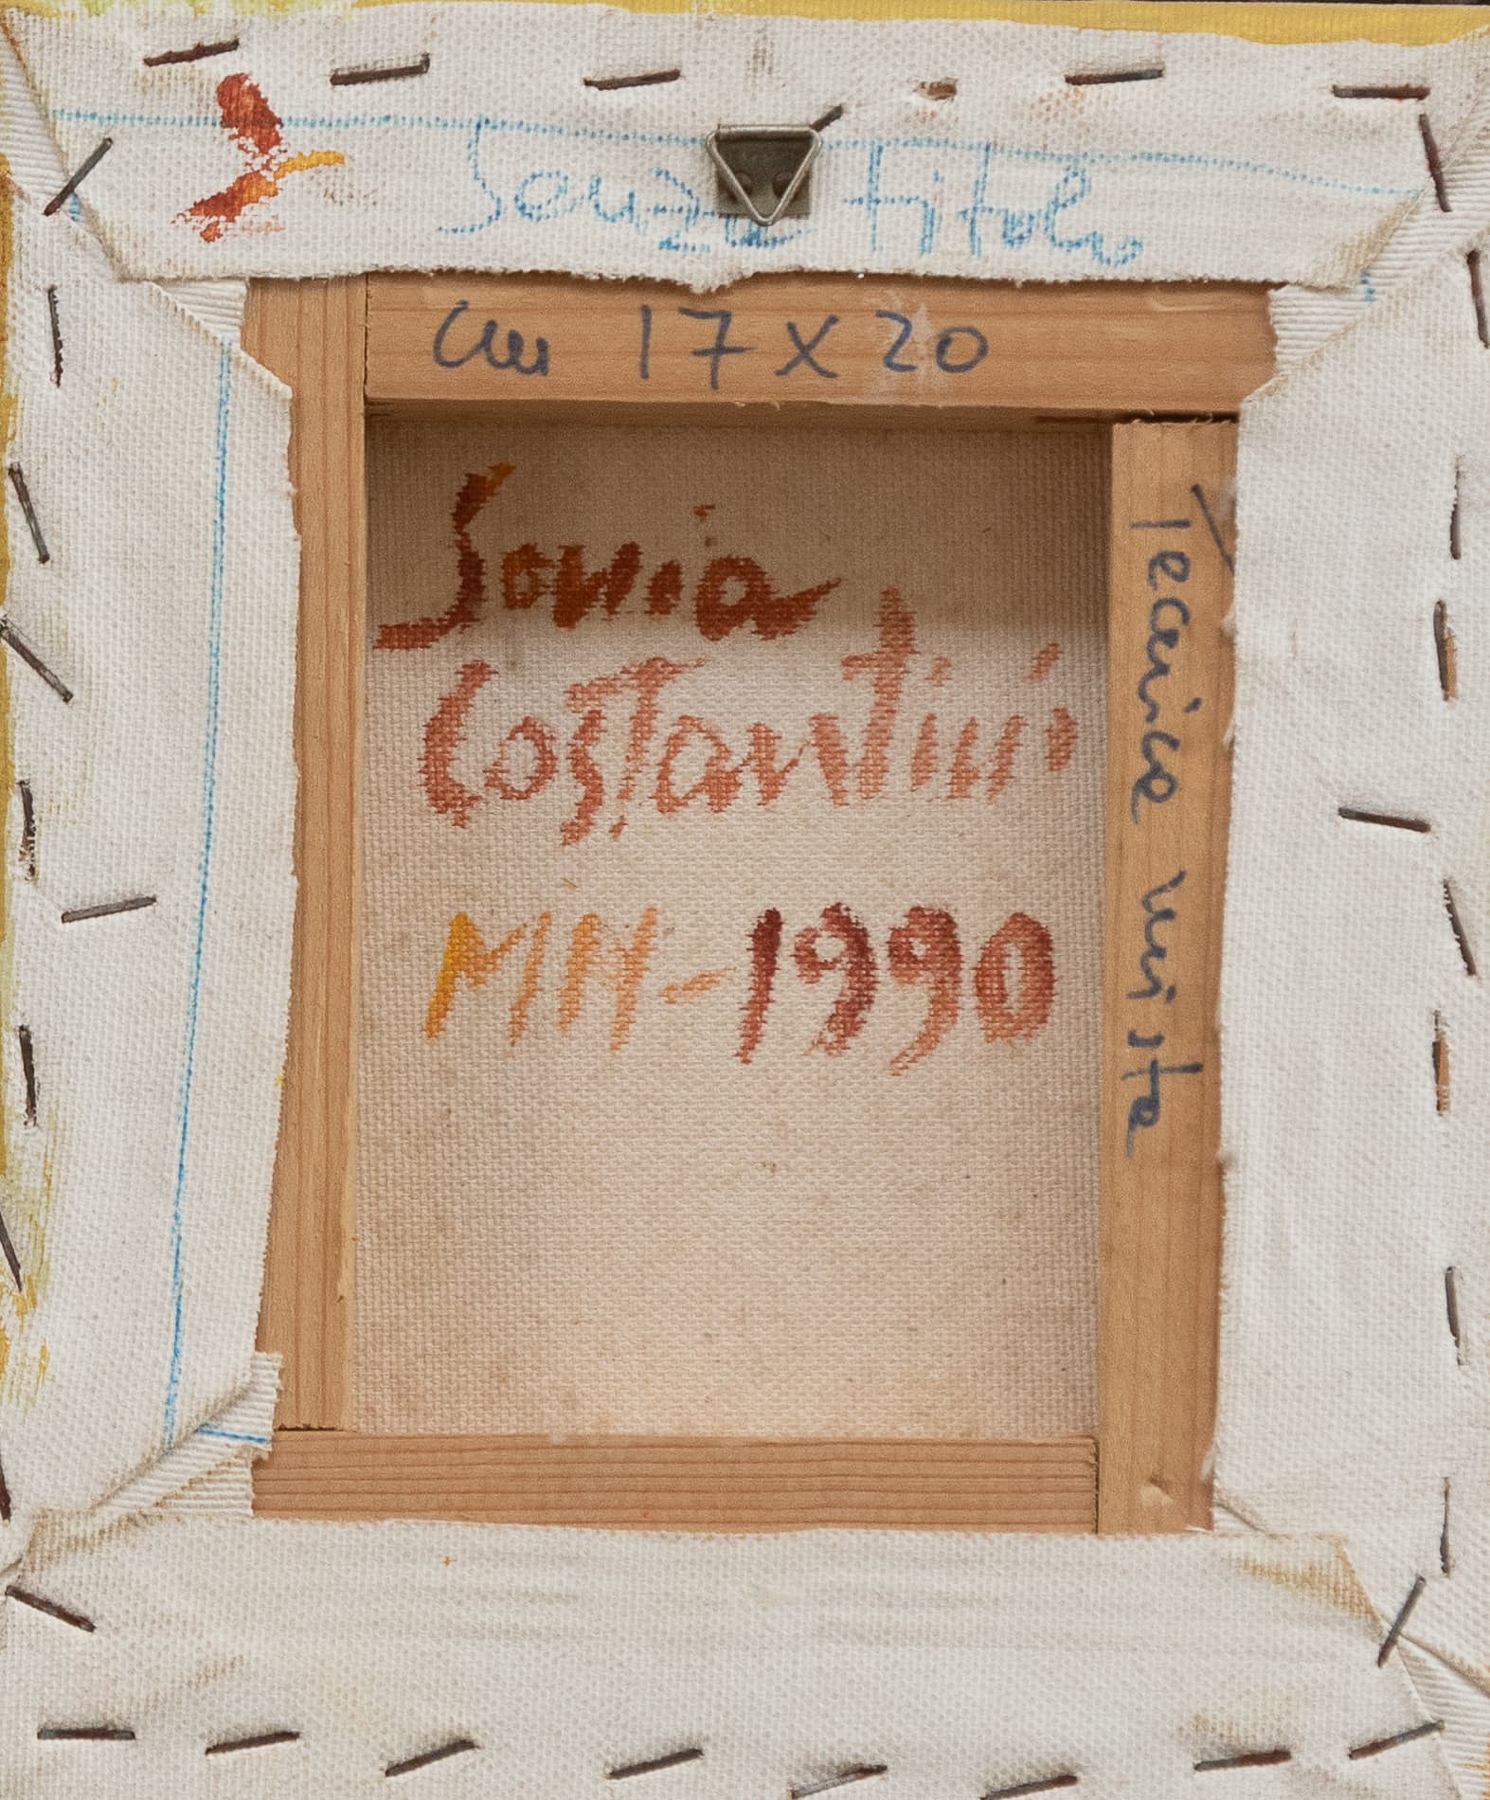 Senza titolo
cm 17 x 20
Sonia
Costantini
MN-1990
Tecnica mista